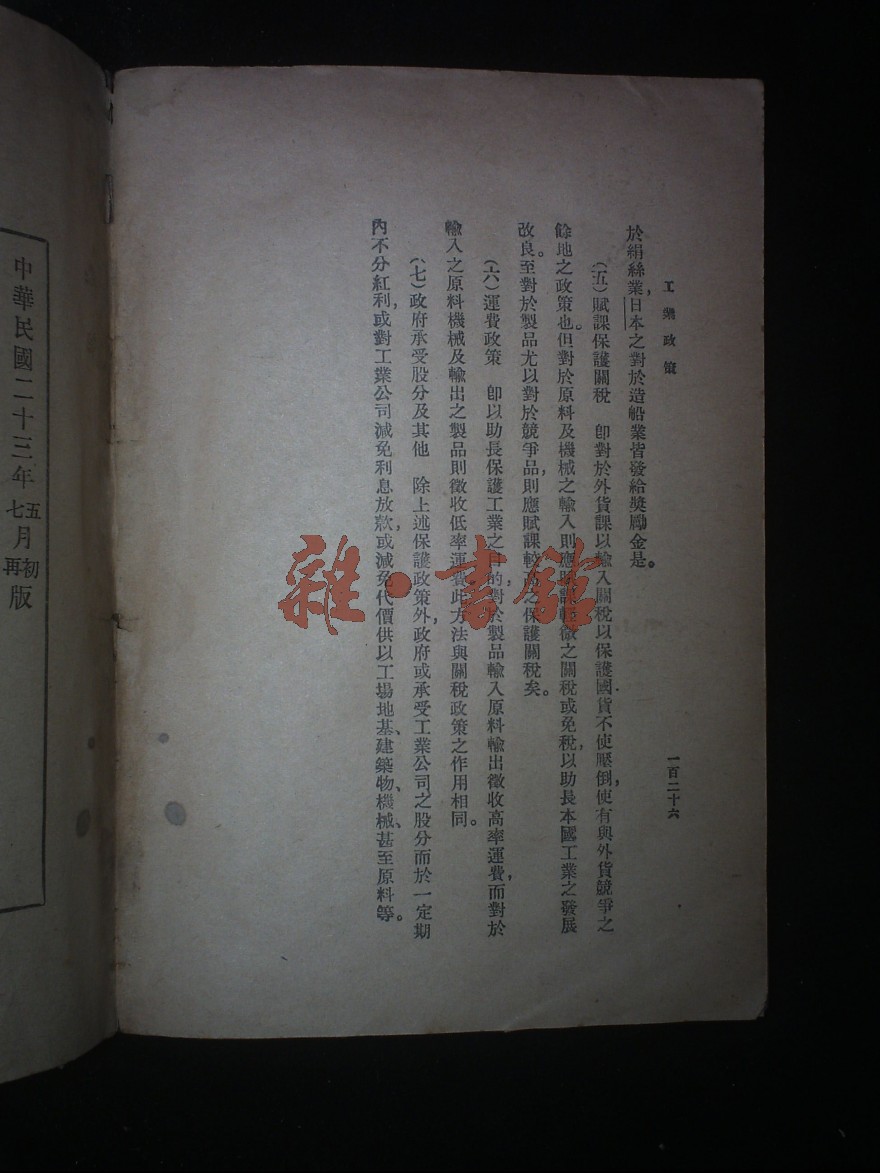 工業政策
一百二十六
於絹絲業，日本之對於造船業皆發給獎勵金是。
(五)賦課保護關稅　卽對於外貨課以輸入關稅以保護國貨不使壓倒，使有與外貨競爭之
餘地之政策也。但對於原料及機械之輸入則應賦課輕微之關稅或免稅，以助長本國工業之發展
改良。至對於製品尤以對於競爭品，則應賦課較高之保護關稅矣。
(六)運費政策　卽以助長保護工業之目的，對於製品輸入原料輸出徵收高率運費，而對於
輸入之原料機械及輸出之製品則徵收低率運費，此方法與關稅政策之作用相同。
(七)政府承受股分及其他　除上述保護政策外，政府或承受工業公司之股分而於一定期
內不分紅利，或對工業公司減免利息放款，或減免代價供以工場地基、建築物、機械、甚至原料等。
中華民國二十三年五月初版
七月再版
雜·書館